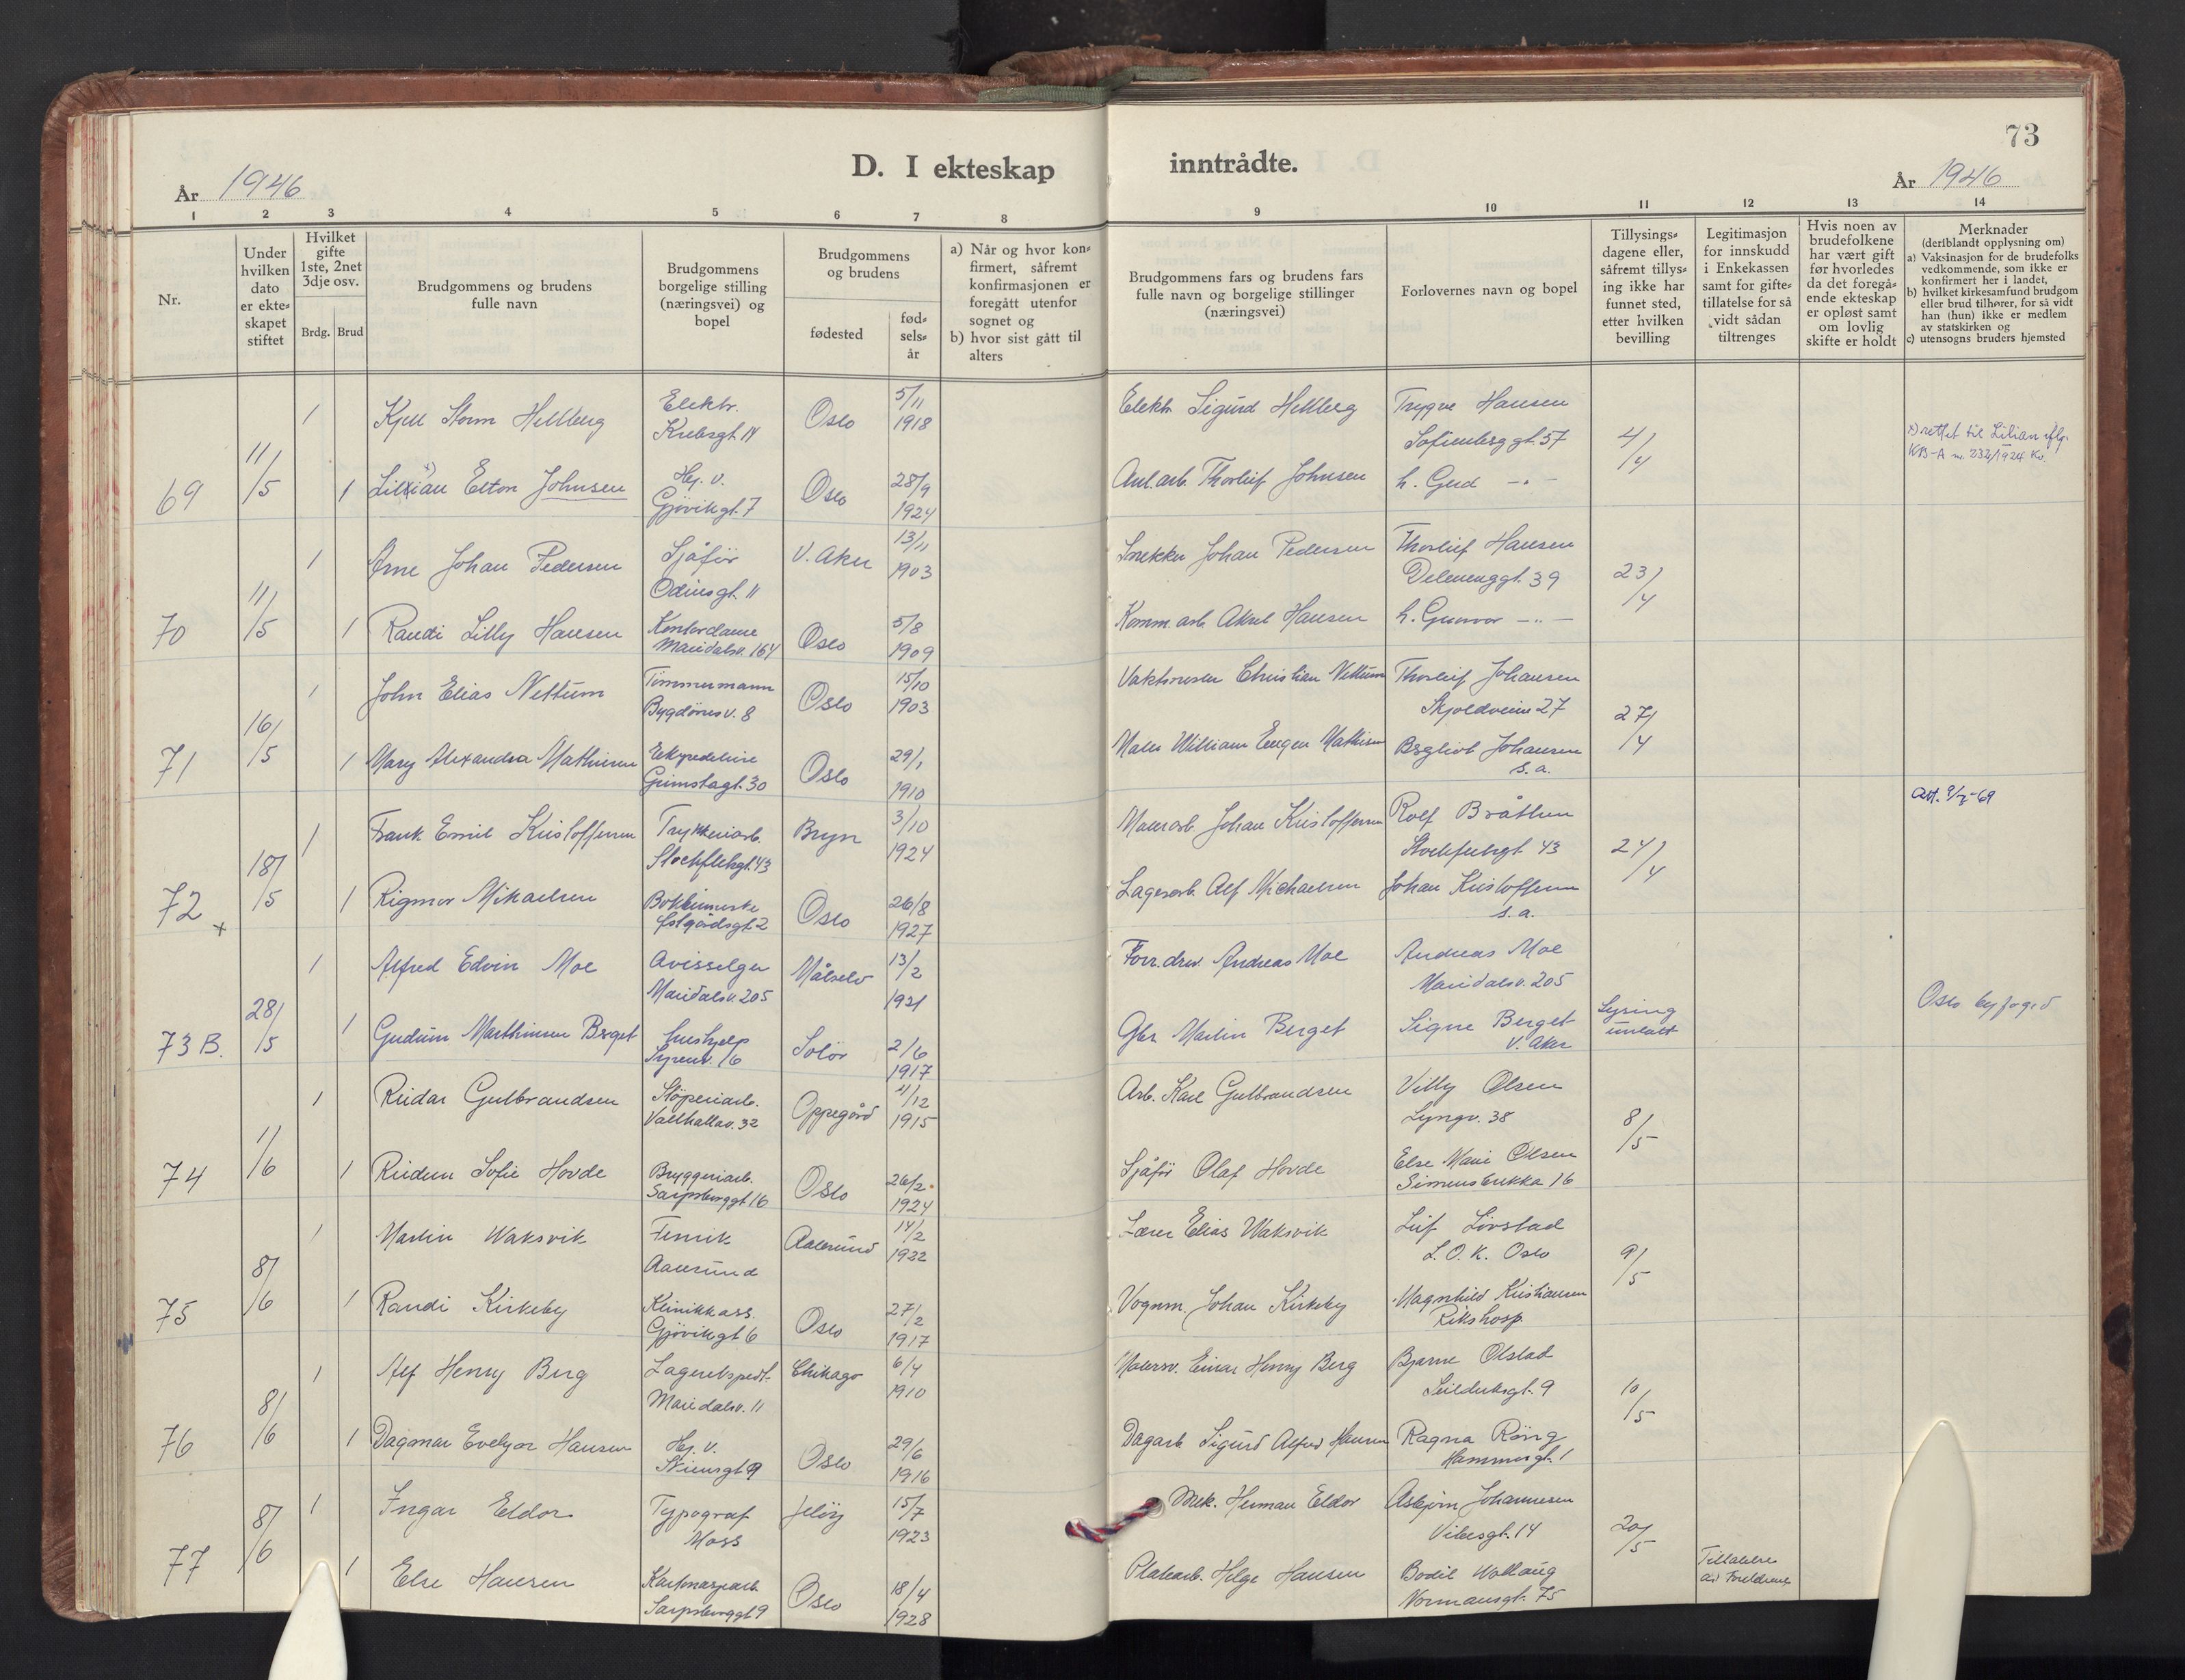 73
D. I ekteskap inntrådte.
År 1946
År 1946
1 2 3 4 5 6 7 8 9 10 11 12 13 14
Nr.
Under hvilken dato er ekte-skapet stiftet
Hvilket gifte 1ste, 2net 3dje osv.
Brdg. Brud
Brudgommens og brudens fulle navn
Brudgommens borgelige stilling (næringsvei) og bopel
Brudgommens og brudens
fødested
fød-sels-år
a) Når og hvor kon-firmert, såfremt konfirmasjonen er foregått utenfor sognet og
b) hvor sist gått til alters
Brudgommens fars og brudens fars fulle navn og borgelige stillinger (næringsvei)
Forlovernes navn og bopel
Tillysings-dagene eller, såfremt tillys-ing ikke har funnet sted, etter hvilken bevilling
Legitimasjon for innskudd i Enkekassen samt for gifte-tillatelse for så vidt sådan tiltrenges
Hvis noen av brudefolkene har vært gift før hvorledes da det foregå-ende ekteskap er opløst samt om lovlig skifte er holdt
Merknader (deriblandt opplysning om)
a) Vaksinasjon for de brudefolks vedkommende, som ikke er konfirmert her i landet,
b) hvilket kirkesamfund brudgom eller brud tilhører, for så vidt han (hun) ikke er medlem av statskirken og
c) utensogns bruders hjemsted
1 Kjell Storm Hellberg Elektr. Krebsgt. 14 Oslo 5/11 1918 Elektr. Sigurd Hellberg Trygve Hansen Sofienberggt. 57 4/4 x) rettet til Lilian iflg. KB-A nr. 232/1924 Kv.
69 11/5 1 Lillian x) Elton Johnsen Hj. v. Gjøvikgt. 7 Oslo 28/9 1924 Anl.arb. Thorleif Johnsen h. Gud -"-
1 Arne Johan Pedersen Sjåfør Odinsgt. 11 V. Aker 13/11 1903 Snekker Johan Pedersen Thorleif Hansen Delenenggt. 39 23/4
70 11/5 1 Randi Lilly Hansen Kontordame Maridalsv. 164 Oslo 5/8 1909 Komm.arb. Aksel Hansen h. Gunvor -"-
1 John Elias Nettum Tømmermann Bygdønesv. 8 Oslo 15/10 1903 Christian Nettum Thorleif Johansen Skjoldveien 27 27/4
71 16/5 1 Mary Alexandra Mathisen Ekspeditrise Grimstagt. 30 Oslo 29/1 1910 Maler William Eugen Mathisen Bergliot Johansen s. a.
1 Frank Emil Kristoffersen Trykkeriarb. Stockflethgt. 43 Bryn 3/10 1924 Murarb. Johan Kristoffersen Rolf Bråthen Stockflethgt. 43 24/4
72 x 18/5 1 Rigmor Mikaelsen Oslo 26/8 1927 Lagerarb. Alf Michaelsen Johan Kristoffersen s. a.
1 Alfred Edvin Moe Avisselger Maridalsv. 205 Målselv 13/2 1921 Forr.driv. Andreas Moe Andreas Moe Maridalsv. 205 Lysing unlatt Oslo byfoged
73 B. 28/5 1 Gudrun Marthinsen Berget hushjelp Syrenv. 16 Solør 2/6 1917 Gbr. Martin Berget Signe Berget V. Aker
1 Reidar Gulbrandsen Støperiarb. Valhallav. 32 Oppegård 4/12 1915 Arb. Karl Gulbrandsen Villy Olsen Lyngv. 38 8/5
74 1/6 1 Reidun Sofie Hovde Bryggeriarb. Sarpsborggt. 16 Oslo 26/2 1924 Sjåfør Olaf Hovde Else Marie Olsen Simensbukka 16
1 Martin Waksvik Fenrik Aalesund Aalesund 14/2 1922 Lærer Elias Waksvik Leif Livstad L. O. K. Oslo 9/5
75 8/6 1 Randi Kirkeby Klinikkass. Gjøvikgt 6 Oslo 27/2 1917 Vognm. Johan Kirkeby Magnhild Kristiansen Rikshosp.
1 Alf Henry Berg Lagerekspedt. Maridalsv. 11 Chikago 6/4 1910 Einar Henry Berg Bjarne Olstad Seilduksgt. 9 10/5
76 8/6 1 Dagmar Evelyor Hansen Hj. v. Skiensgt. 9 Oslo 29/6 1916 Dagarb. Sigurd Alfred Hansen Ragna Röng Hammersgt. 1
1 Ingar Eldor Typograf Moss Jeløy 15/7 1923 Mek. Herman Eldor Asbjørn Johannesen Vibesgt. 14 20/5
77 8/6 1 Else Hansen Kartonasjearb. Sarpsborggt 9 Oslo 18/4 1928 Platearb. Helge Hansen Bodil Wollaug Normansgt. 75 Tillatelse av Foreldrene